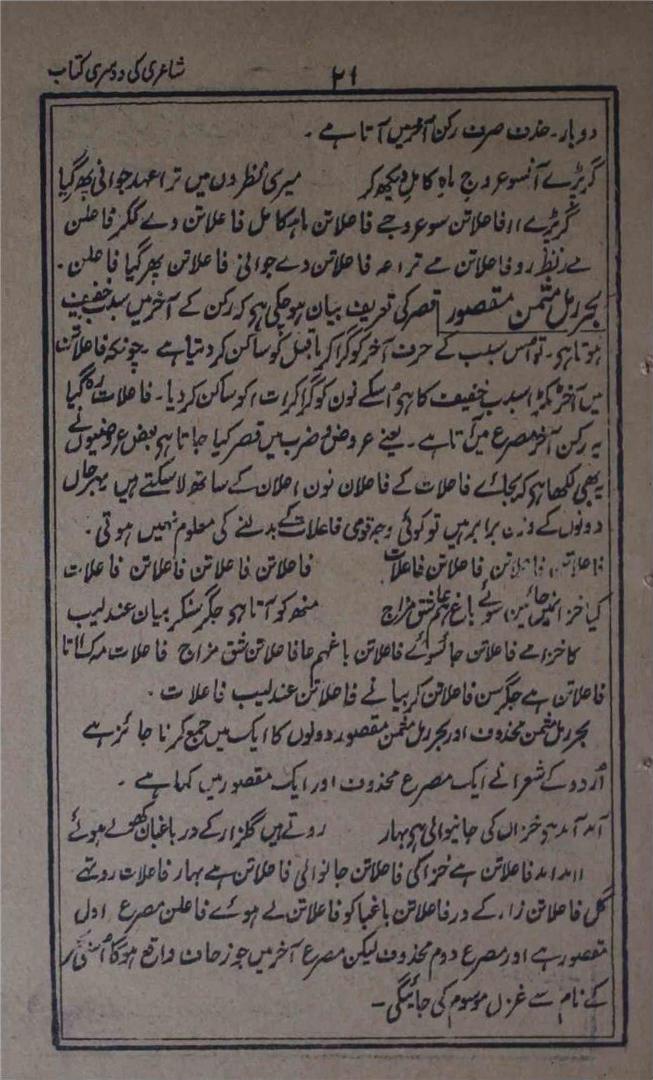 ۲۱ شاعری کی دوسری کتاب
دوبار۔ حذف صرف رکن آخر میں آتا ہے ۔
گر پڑے آنسو عروجِ ماہِ کامل دیکھ کر میری نظر دں میں ترا عہد جوانی پھر گیا
گر پڑے ااا فاعلاتن سو عروجے فاعلاتن ماہ کامل فاعلاتن دے ککر فاعلن
مے ر نظر و فاعلاتن مے ترا عہ فاعلاتن دے جوانی فاعلاتن پھر گیا فاعلن ۔
بحر رمل مثمن مقصور قصر کی تعریف بیان ہو چکی ہو کہ رکن کے آخر میں سبب خفیف
ہوتا ہو ۔ تو اس سبب کے حرف آخر کو گرا کر ماقبل کو ساکن کر دیتا ہے ۔ چونکہ فاعلاتن
میں آخر ٹکڑا سبب خفیف کا ہو اُسکے نون کو گرا کرات اکو ساکن کر دیا ۔ فاعلات رہ گیا
یہ رکن آخر مصرع میں آتا ہے ۔ یعنے عروض و ضرب میں قصر کیا جاتا ہو بعض عروضیوں نے
یہ بھی لکھا ہو کہ بجائے فاعلات کے فاعلان نون اعلان کے ساتھ لا سکتے ہیں یہر حال
دونوں کے وزن برابر ہیں تو کوئی وجہ قومی فاعلات کے بدلنے کی معلوم نہیں ہوتی ۔
فاعلاتن فاعلاتن فاعلاتن فاعلات فاعلاتن فاعلاتن فاعلاتن فاعلات
کیا خزا نمیں جائین سوئے باغ ہم عاشق مزاج منھ کو آتا ہو جگر سنکر بیان عندلیب
کا خزا مے فاعلاتن جا سوئے فاعلاتن باغہم عا فاعلاتن شق مزاج فاعلات مہ ک ااتا
فاعلاتن ہے جگر سن فاعلاتن کر بیانے فاعلاتن عندلیب فاعلات ۔
بحر رمل مثمن محذوف اور بحر رمل مثمن مقصور دونوں کا ایک میں جمع کرنا جائز ہے
اُردو کے شعرا نے ایک مصرع محذوف اور ایک مقصور میں کہا ہے ۔
آمد آمد ہو خزاں کی جانیوالی ہو بہار روتے ہیں گلزار کے در باغبان کھولے ہوئے
اامد امد فاعلاتن ہے خزا کی فاعلاتن جانوالی فاعلاتن ہے بہار فاعلات روتہے
گل فاعلاتن زار کے در فاعلاتن باغبا کو فاعلاتن لے ہوے فاعلن مصرع اول
مقصور ہے اور مصرع دوم محذوف لیکن مصرع آخر میں جو زحاف واقع ہوگا اُسی
کے نام سے غزل موسوم کی جائیگی ۔